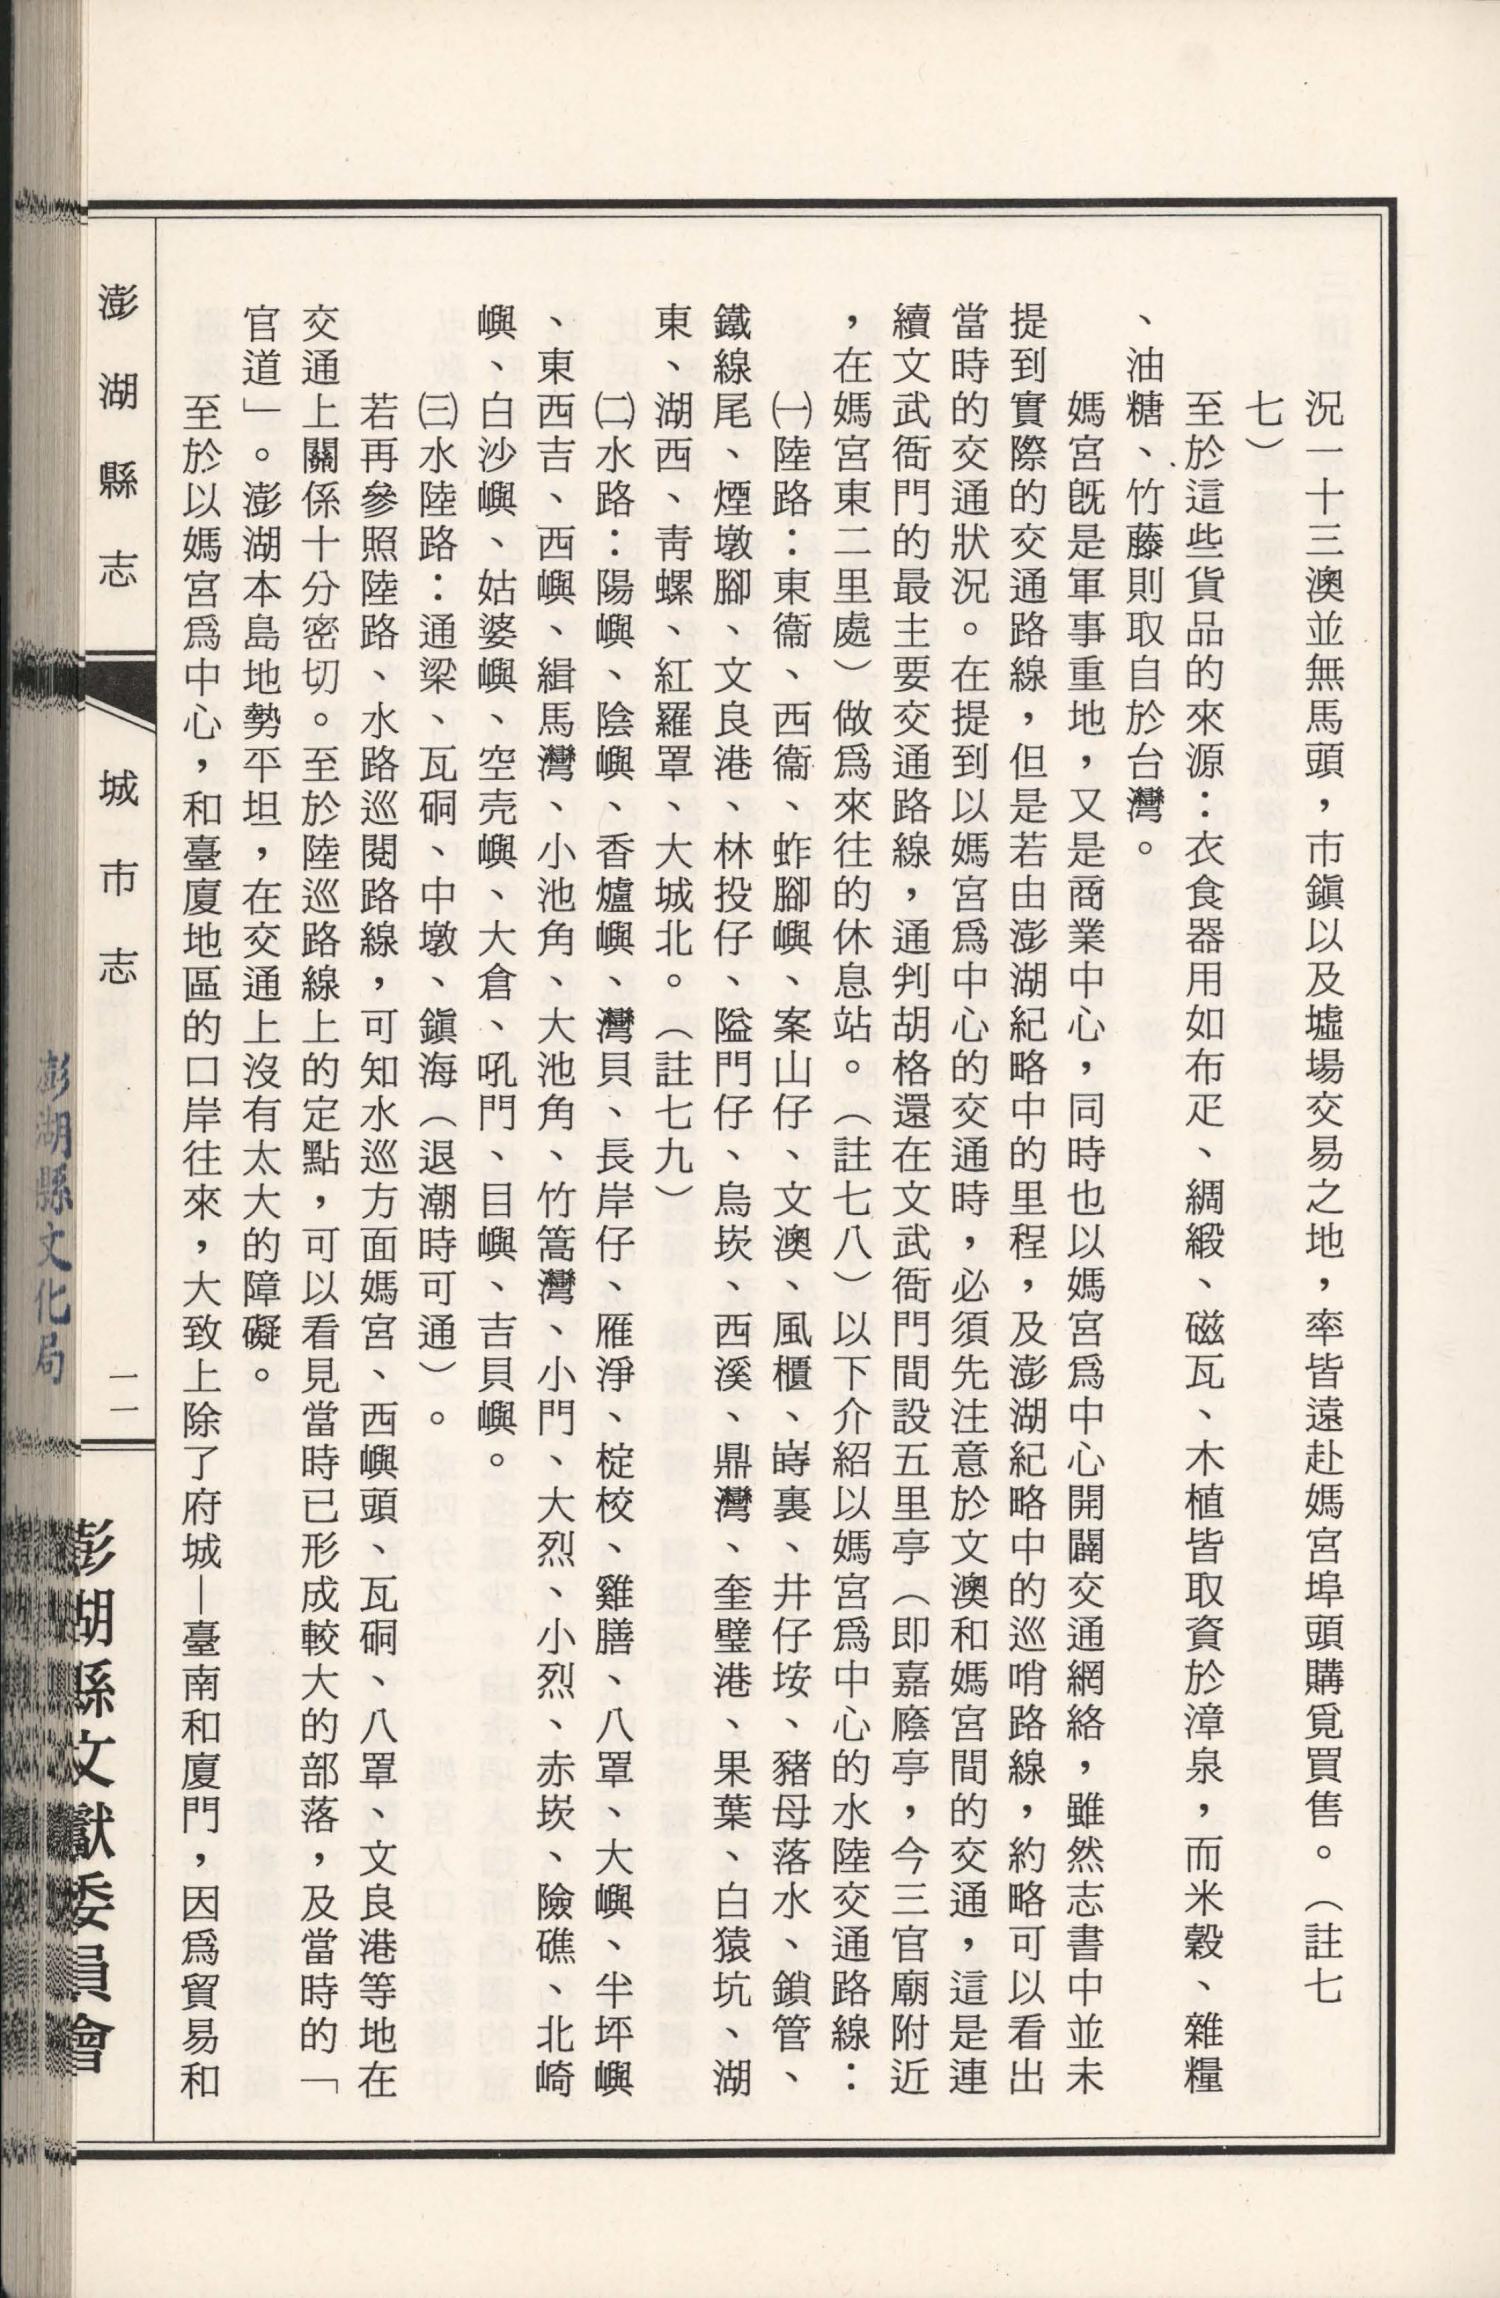 況一十三澳並無馬頭，市鎭以及墟場交易之地，率皆遠赴媽宮埠頭購覓買售。（註七
七）
至於這些貨品的來源：衣食器用如布疋、綢緞、磁瓦、木植皆取資於漳泉，而米穀、雜糧
、油糖、竹藤則取自於台灣。
媽宮旣是軍事重地，又是商業中心，同時也以媽宮爲中心開闢交通網絡，雖然志書中並未
提到實際的交通路線，但是若由澎湖紀略中的里程，及澎湖紀略中的巡哨路線，約略可以看出
當時的交通狀況。在提到以媽宮爲中心的交通時，必須先注意於文澳和媽宮間的交通，這是連
續文武衙門的最主要交通路線，通判胡格還在文武衙門間設五里亭（即嘉廕亭，今三官廟附近
，在媽宮東二里處）做爲來往的休息站。（註七八）以下介紹以媽宮爲中心的水陸交通路線：
㈠陸路：東衞、西衞、蚱腳嶼、案山仔、文澳、風櫃、嵵裏、井仔垵、豬母落水、鎖管、
鐵線尾、煙墩腳、文良港、林投仔、隘門仔、烏崁、西溪、鼎灣、奎璧港、果葉、白猿坑、湖
東、湖西、靑螺、紅羅罩、大城北。（註七九）
㈡水路：陽嶼、陰嶼、香爐嶼、灣貝、長岸仔、雁淨、椗校、雞膳、八罩、大嶼、半坪嶼
、東西吉、西嶼、緝馬灣、小池角、大池角、竹篙灣、小門、大烈、小烈、赤崁、險礁、北崎
嶼、白沙嶼、姑婆嶼、空壳嶼、大倉、吼門、目嶼、吉貝嶼。
㈢水陸路：通梁、瓦硐、中墩、鎭海（退潮時可通）。
若再參照陸路、水路巡閱路線，可知水巡方面媽宮、西嶼頭、瓦硐、八罩、文良港等地在
交通上關係十分密切。至於陸巡路線上的定點，可以看見當時已形成較大的部落，及當時的「
官道」。澎湖本島地勢平坦，在交通上沒有太大的障礙。
至於以媽宮爲中心，和臺廈地區的口岸往來，大致上除了府城—臺南和廈門，因爲貿易和
澎湖縣志
城市志
一一
澎湖縣文獻委員會
澎湖縣文化局